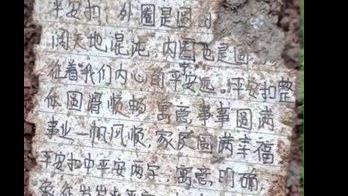 平安扣，外圈是圆的
闵天地混沌，内圈也是圆，
注着我们内心的平安远。平安扣整
体圆滑顺畅，寓意事事圆满
事业一帆风顺，家庭圆满幸福
平安扣中平安两字，寓意明确